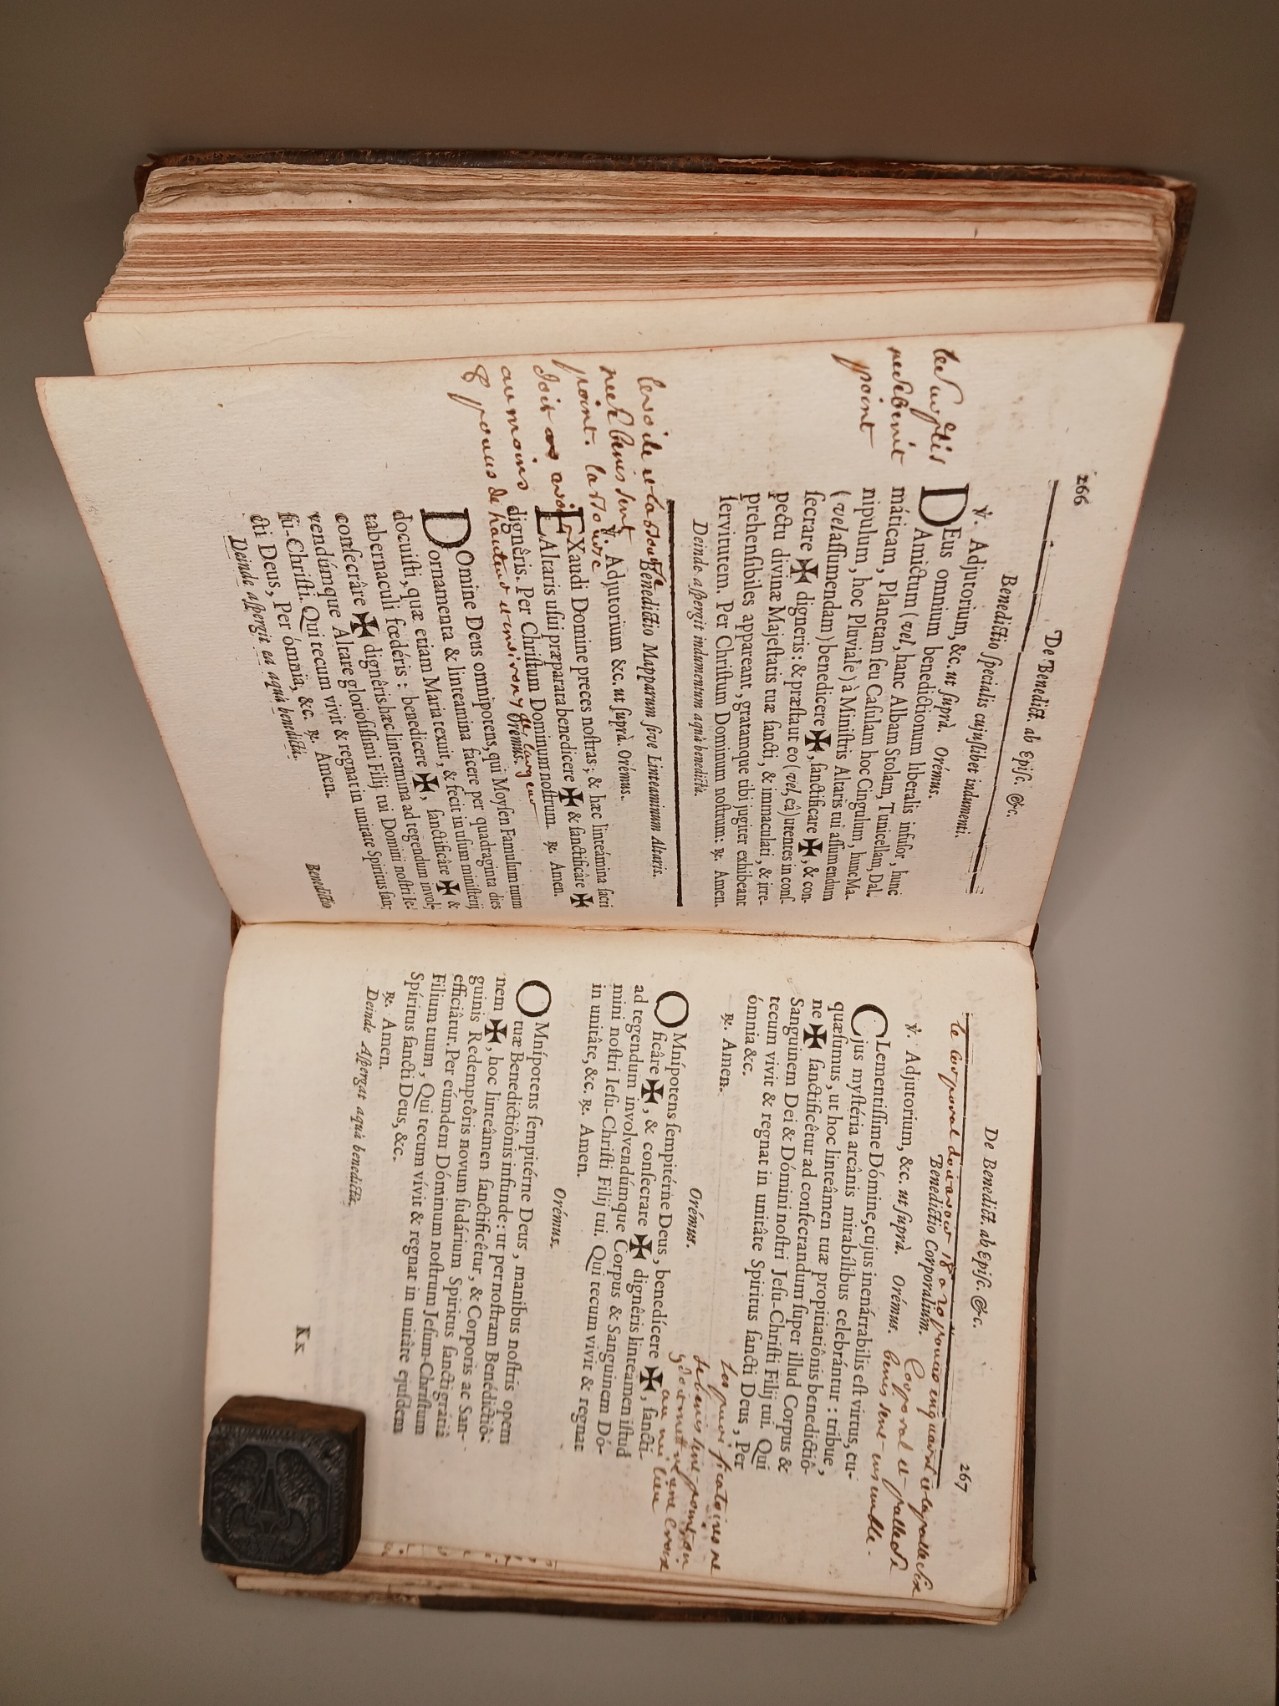 266
De Benedict. ab Episc. &c.
Benedictio specialis cujuslibet indumenti.
℣. Adjutorium, &c. ut suprà. Orémus.
DEus omnium benedictionum liberalis infusor, hunc
Amictum (vel, hanc Albam Stolam, Tunicellam, Dal-
máticam, Planetam seu Casulam hoc Cingulum, hunc Ma-
nipulum, hoc Pluviale) à Ministris Altaris tui assumendum
(vel assumendam) benedicere ✠, sanctificare ✠, & con-
secrare ✠ digneris: & præsta ut eo (vel, eâ) utentes in cons-
pectu divinæ Majestatis tuæ sancti, & immaculati, & irre-
prehensibiles appareant, gratamque tibi jugiter exhibeant
servitutem. Per Christum Dominum nostrum: ℟. Amen.
Deinde aspergit indumentum aquâ benedictâ.
point
Benedictio Mapparum sive Linteaminum Altaris.
℣. Adjutorium &c. ut suprà. Orémus.
EXaudi Domine preces nostras; & hæc linteámina sacri
Altaris usui præparata benedicere ✠ & sanctificáre ✠
dignêris. Per Christum Dominum nostrum. ℟. Amen.
Orémus.
DOmine Deus omnipotens, qui Moysen Famulum tuum
ornamenta & linteamina facere per quadraginta dies
docuisti, quæ etiam Maria texuit, & fecit in usum ministerij
tabernaculi fœdéris: benedicere ✠, sanctificâre ✠ &
consecrâre ✠ dignêris hæc linteamina ad tegendum invol-
vendúmque Altare gloriosissimi Filij tui Domini nostri Ie-
su-Christi. Qui tecum vivit & regnat in unitate Spiritus san-
cti Deus, Per ómnia, &c. ℟. Amen.
Deinde aspergit ea aquâ benedictâ.
Benedictio
point. la
au moins
8 pouces de hauteur et environ 7 de largeur
De Benedict. ab Episc. &c.
267
le corporal doit avoir 18 a 20 pouces en quarré et la palle six
Benedictio Corporalium.
Corporal et palle se
benissent ensemble.
℣. Adjutorium, &c. ut suprà. Orémus.
CLementissime Dómine, cujus inenárrabilis est virtus, cu-
jus mystéria arcânis mirabílibus celebrántur: tribue,
quæsumus, ut hoc linteâmen tuæ propitiatiônis benedictiô-
ne ✠ sanctificêtur ad consecrandum super illud Corpus &
Sanguinem Dei & Dómini nostri Jesu-Christi Filij tui. Qui
tecum vivit & regnat in unitâte Spiritus sancti Deus, Per
ómnia &c.
℟. Amen.
les purificatoires ne
se benissent point on
au milieu
Orémus.
OMnípotens sempitérne Deus, benedícere ✠, sancti-
ficâre ✠, & consecrare ✠ dignêris linteamen istud
ad tegendum involvendúmque Corpus & Sanguinem Dó-
mini nostri Iesu-Christi Filij tui. Qui tecum vivit & regnat
in unitâte, &c. ℟. Amen.
Orémus.
OMnípotens sempitérne Deus, manibus nostris opem
tuæ Benedictiônis infunde: ut per nostram Benédictiô-
nem ✠, hoc linteâmen sanctificêtur, & Corporis ac San-
guinis Redemptôris novum sudárium Spiritus sancti grátiâ
efficiâtur. Per eúmdem Dóminum nostrum Jesum-Christum
Filium tuum, Qui tecum vívit & regnat in unitâte ejusdem
Spíritus sancti Deus, &c.
℟. Amen.
Deinde Aspergat aquâ benedictâ.
Kk